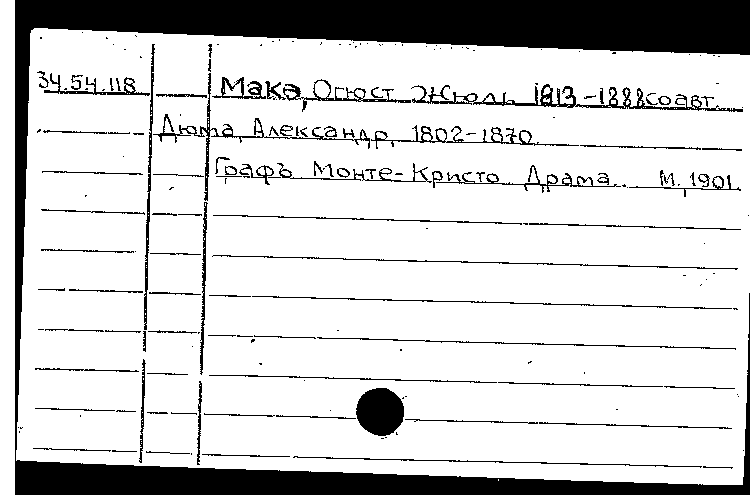 34.54.118 Макэ, Огюст Жюль 1813-1888 соавт.
Дюма, Александр, 1802-1870
Графъ Монте-Кристо Драма. М, 1901.